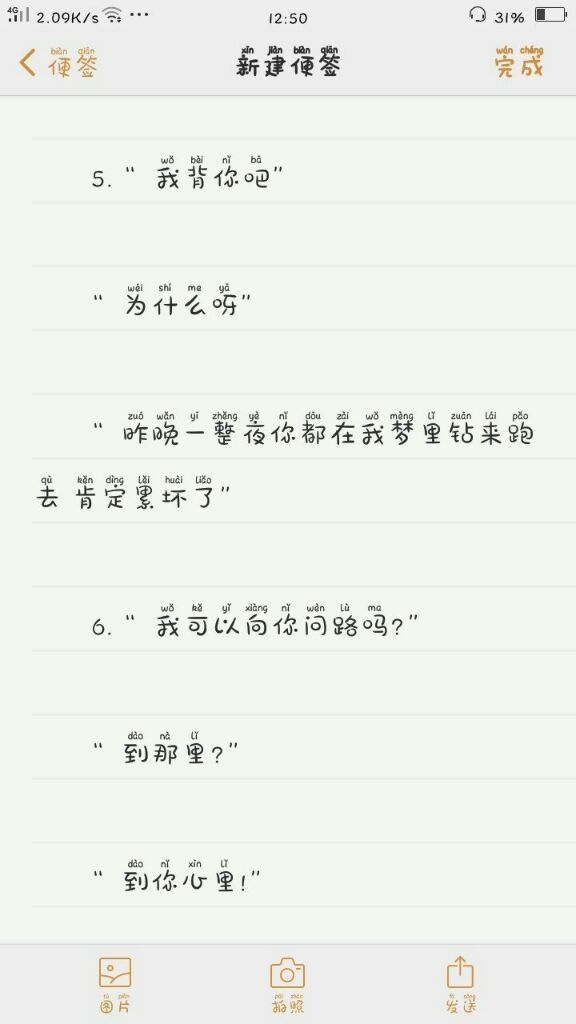 4G 2.09K/s ... 12:50 31%
biàn qiān xīn jiàn biàn qiān wán chéng
便签 新建便签 完成
wǒ bèi nǐ bā
5. “ 我背你吧”
wéi shí me yā
“ 为什么呀”
zuó wǎn yī zhěng yè nǐ dōu zài wǒ mèng lǐ zuān lái pǎo
“ 昨晚一整夜你都在我梦里钻来跑
qù kěn dìng lěi huài liǎo
去 肯定累坏了”
wǒ kě yǐ xiàng nǐ wèn lù ma
6. “ 我可以向你问路吗?”
dào nà lǐ
“ 到那里?”
dào nǐ xīn lǐ
“ 到你心里!”
tú piàn pāi zhào fā sòng
图片 拍照 发送